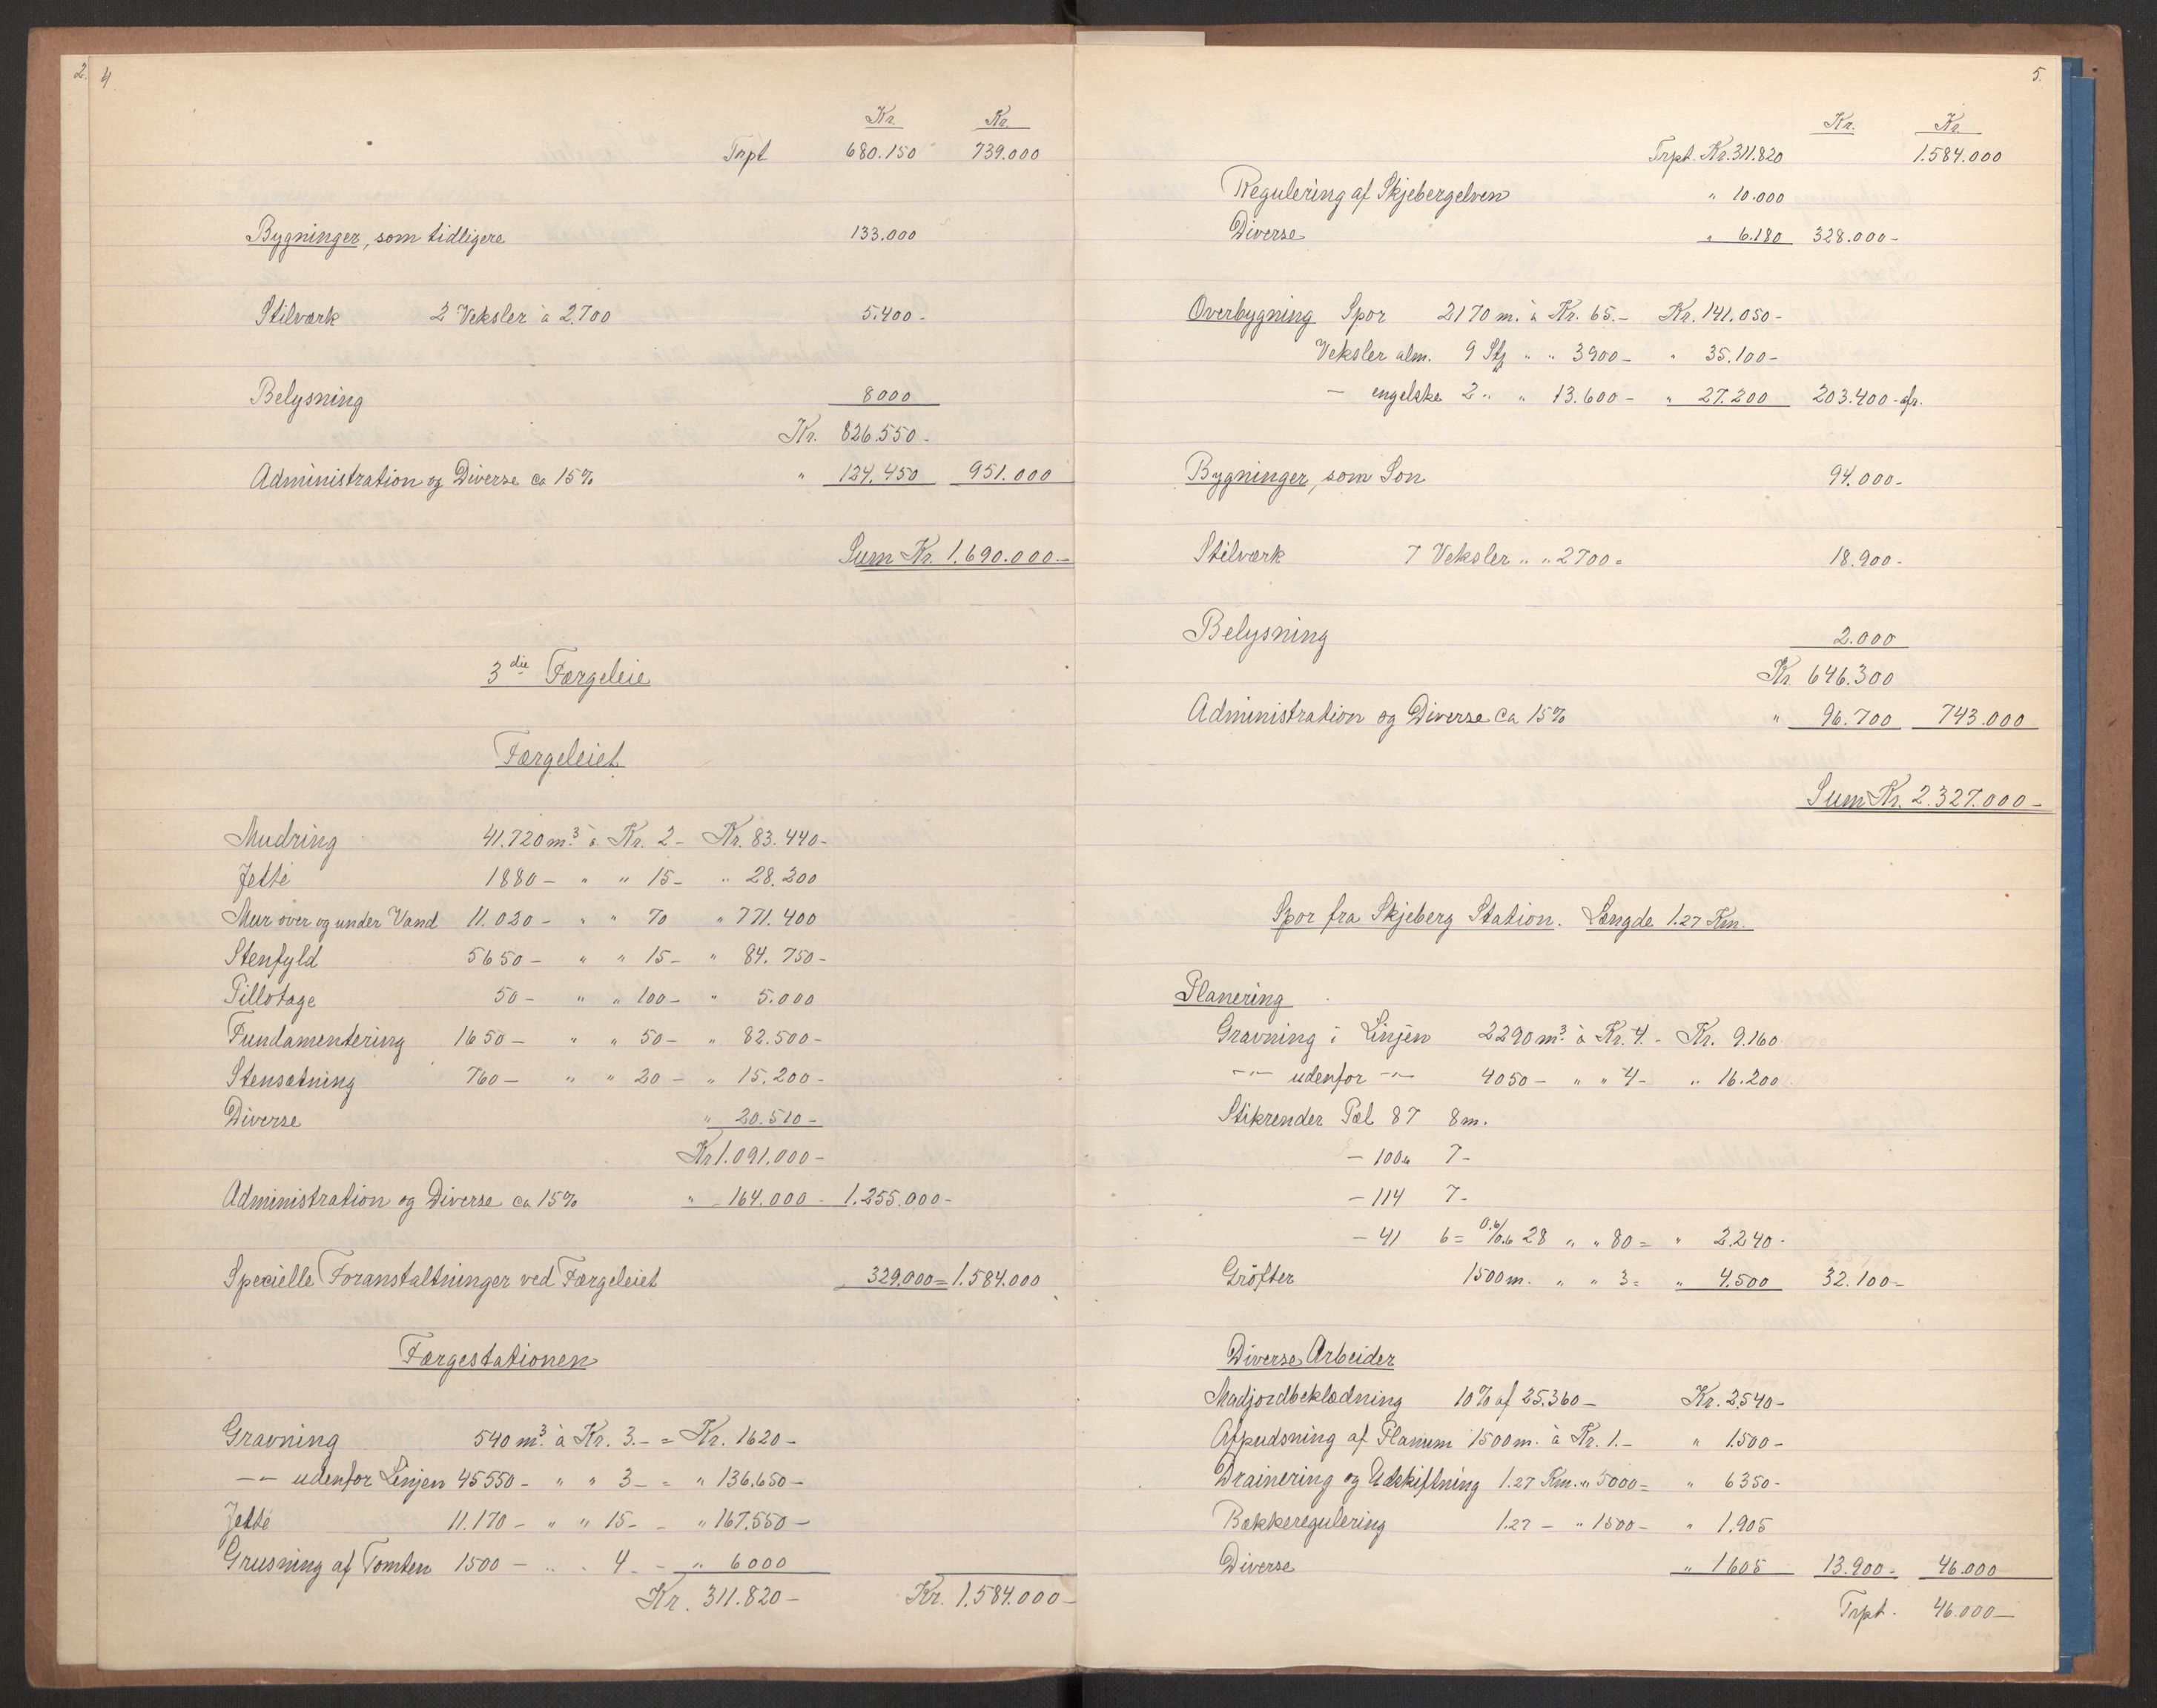 2. 4
Kr. Kr.
Trpt 680.150 739.000
Bygninger, som tidligere 133.000
Stilværk 2 Veksler à 2.700 5.400.
Belysning 8000
Kr. 826.550.
Administration og Diverse ca 15% " 124.450 951.000
Sum Kr. 1.690.000.-
3die Færgeleie
Færgeleiet
Mudring 41.720 m.3 à Kr. 2- Kr. 83.440-
Jetté 1880 - " " 15- " 28.200
Mur over og under Vand 11.020 - " " 70 " 771.400
Stenfyld 5650 - " " 15- " 84.750-
Pillotage 50 - " " 100- " 5.000
Fundamentering 1650 - " " 50- " 82.500-
Stensætning 760 - " " 20- " 15.200-
Diverse " 20.510-
Kr 1.091.000-
Administration og Diverse ca 15% " 164.000- 1.255.000-
Specielle Foranstaltninger ved Færgeleiet 329.000= 1.584.000
Færgestationen
Gravning 540 m.3 à Kr. 3.- = Kr. 1620-
-"- udenfor Linjen 45550 - " " 3- = " 136.650-
Jetté 11.170 - " " 15- - " 167.550-
Grusning af Tomten 1500 - " " 4- - " 6000
Kr. 311.820- Kr. 1.584.000-
5.
Kr. Kr
Trpt. Kr. 311.820 1.584.000
Regulering af Skjebergelven " 10.000
Diverse " 6.180 328.000-
Overbygning Spor 2170 m. à Kr. 65.- Kr. 141.050-
Veksler alm. 9 Stk " " 3900- " 35.100-
- engelske 2 " " 13.600- " 27.200 203.400- afr.
Bygninger, som Son 94.000-
Stilværk 7 Veksler " " 2700= 18.900-
Belysning 2.000
Kr. 646.300
Administration og Diverse ca 15% " 96.700 743.000
Sum Kr. 2.327.000-
Spor fra Skjeberg Station. Længde 1.27 Km.
Planering
Gravning i Linjen 2290 m.3 à Kr. 4.- Kr. 9.160
-"- udenfor -"- 4050 - " " 4- " 16.200
Stikrender Pæl 87 8 m.
- 100a 7-
- 114 7-
- 41 6= 0.6/0.6 28 " " 80= " 2.240-
Gröfter 1500 m. " " 3= " 4.500 32.100-
Diverse Arbeider
Madjordbeklædning 10% af 25.360- Kr. 2540-
Afpudsning af Planum 1500 m. à Kr. 1.- " 1.500-
Drainering og Udskiftning 1.27 Km. " 5000= " 6350-
Bækkeregulering 1.27 - " 1500- " 1.905
Diverse " 1605 13.900- 46.000
Trpt. 46.000-